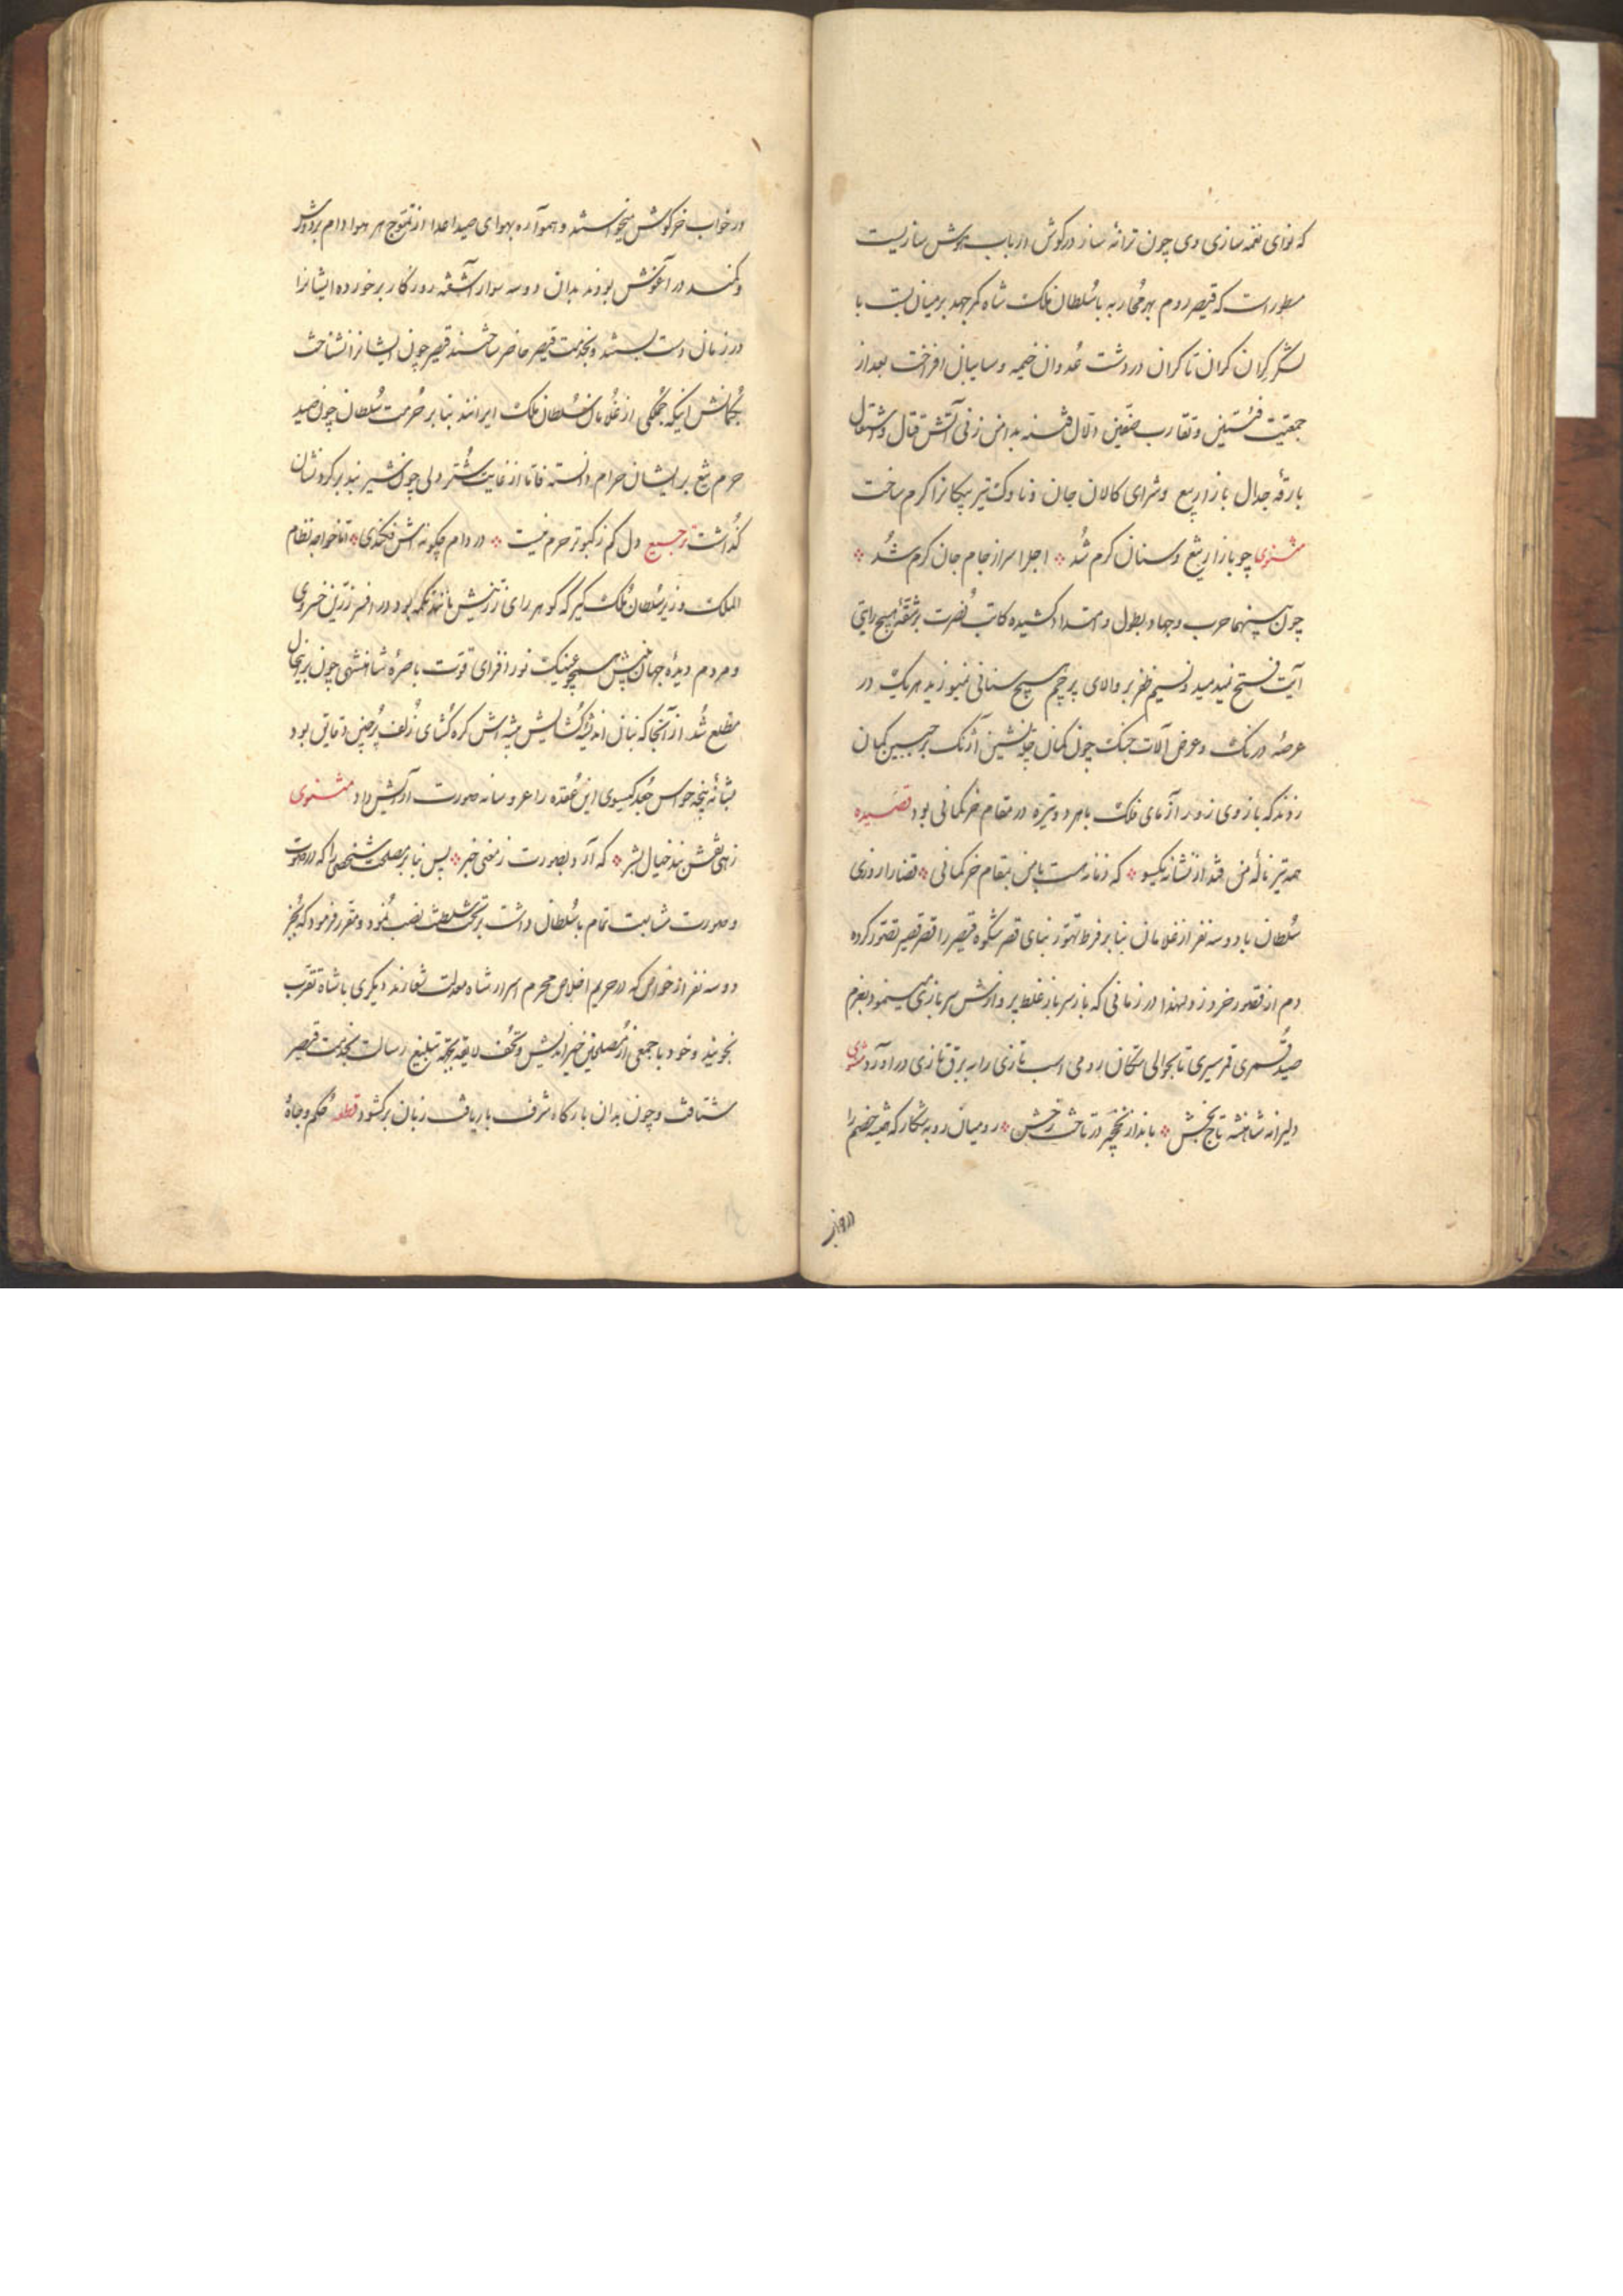 که نوای نغمه سازی وی چون ترانهٔ ساز در کوش ارباب هوش سازیست
مسطور است که قیصر روم بهر محاربه با سُلطان ملک شاه کمر جهد بر میان بست با
لشکر کران کران تا کران در دشت عُدوان خیمه و سایبان افراخت بعد از
جمعیّت فئتین و تقارب صفّین دلال فتنه بدامن زنی آتش قتال و اشتعال
بارقهٔ جدال بازار بیع و شرای کالان جان و ناوک تیر پیکانرا کرم ساخت
مثنوی چو بازار تیغ و سنان کرم شُد ٭ اجل را سر از جام جان کرم شُد ٭
چون سپنهما حرب و جهاد بطول و امتداد کشیده کاتب نُصرت بر شقّهٔ هیچ رایتی
آیت فتح نمیدمید و نسیم ظفر بر والای پرچم هیچ سنانی نمیوزید هر یک در
عرصهٔ درنک و عرض آلات جنک چون کمان چلّه نشین آژنک بر جبین کمان
زدند که بازوی زور آزمای فلک با هر دو تیره در مقام خر کمانی بود قصیده
همه تیر نالهٔ من فتد از نشانه یکسو ٭ که زمانه هست با من بمقام خر کمانی ٭ قضا را روزی
سُلطان با دو سه نفر از غلامان بنا بر فرط تهوّر بنای قصر شکوه قیصر را قصر قصیر تصوّر کرده
دم از قصور خرد زد و لهذا در زمانی که باز سر باز غلط پروازش سر بازی مینمود بعزم
صید قُمری قمر سیری تا بحوالی مکان رومی اسب تازی را به برق تازی در آورد مثنوی
دلیرانه شاهنشه تاج بخش ٭ بانداز نخچیر در تاخت رخش ٭ رومیان روبه شکار که همیشه خصم را
در خواب
در خواب خرکوش میخواستند و همواره بهوای صید اعدا از تموّج هر هوا دام بر دوش
و کمند در آغوش بودند بدان دو سه سوار آشفته روزکار برخورده ایشانرا
در زمان دست بستند و بخدمت قیصر حاضر ساختند قیصر چون ایشانرا نشناخت
بکمانش اینکه جمکی از غُلامان سُلطان ملک ایرانند بنا بر حُرمت سُلطان چون صید
حرم تیغ بر ایشان حرام دانسته فاتا از غایت تستّر ولی چون شیر بند بر کردنشان
کذُاشت ترجیع دل کم ز کبوتر حرم نیست ٭ در دام چکونه اش فکندی ٭ اما خواجه نظام
الملک وزیر سُلطان مُلک کیر که کوهر رای زرّینش مانند تکمه بود در افسر زرّین خسروی
و مردم دیدهٔ جهان بینش همچو عینک نور افزای قوّت باصرهٔ شاهنشهی چون بر اینحال
مطّلع شُد از آنجا که بنان اندیشهٔ کُشایش پیشه اش کره کُشای زُلف پُر چین دقایق بود
بشانهٔ پنجهٔ حواس جُعد کیسوی این عُقده را عروسانه صورت آرایش داد مثنوی
زهی نقش بند خیال بشر ٭ که آرد بصورت ز معنی خبر ٭ پس بنا بر مصلحت شخصیرا که در هیئت
و صورت مشابهت تمام با سُلطان داشت بر تخت سلطنت نصب نُمود و مقرر فرمود که بجُز
دو سه نفر از خواص که در حریم اخلاص محرم اسرار شاه معدلت شعارند دیکری با شاه تقرّب
نجویند و خود با جمعی از مُصلحین خیر اندیش و تحُف لایقه بجهة تبلیغ رسالت بخدمت قیصر
شتافت و چون بدان بارکاه شرف بار یافت زبان برکشود قطعه حکم و جاهٔ